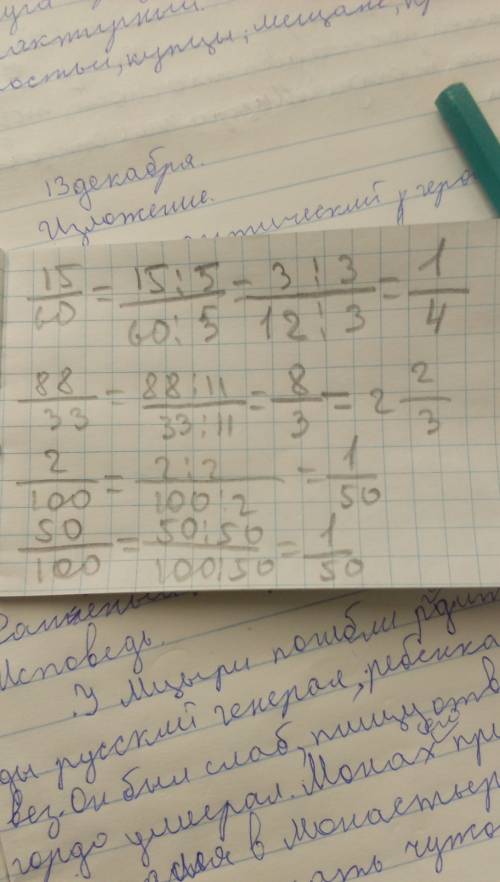 уга
актурный.
остьи, купцы, мещане,
13 декабря.
Изложение.
15/60 = 15:5/60:5 = 3:3/12:3 = 1/4
88/33 = 88:11/33:11 = 8/3 = 2 2/3
2/100 = 2:2/100:2 = 1/50
50/100 = 50:50/100:50 = 1/50
Исповедь.
У Мцыри погибли родит
ды русский генерал, ребенка
вез. Он был слаб, пищу отв
гордо умирал. Монах его при
в монастыре
ать чужо